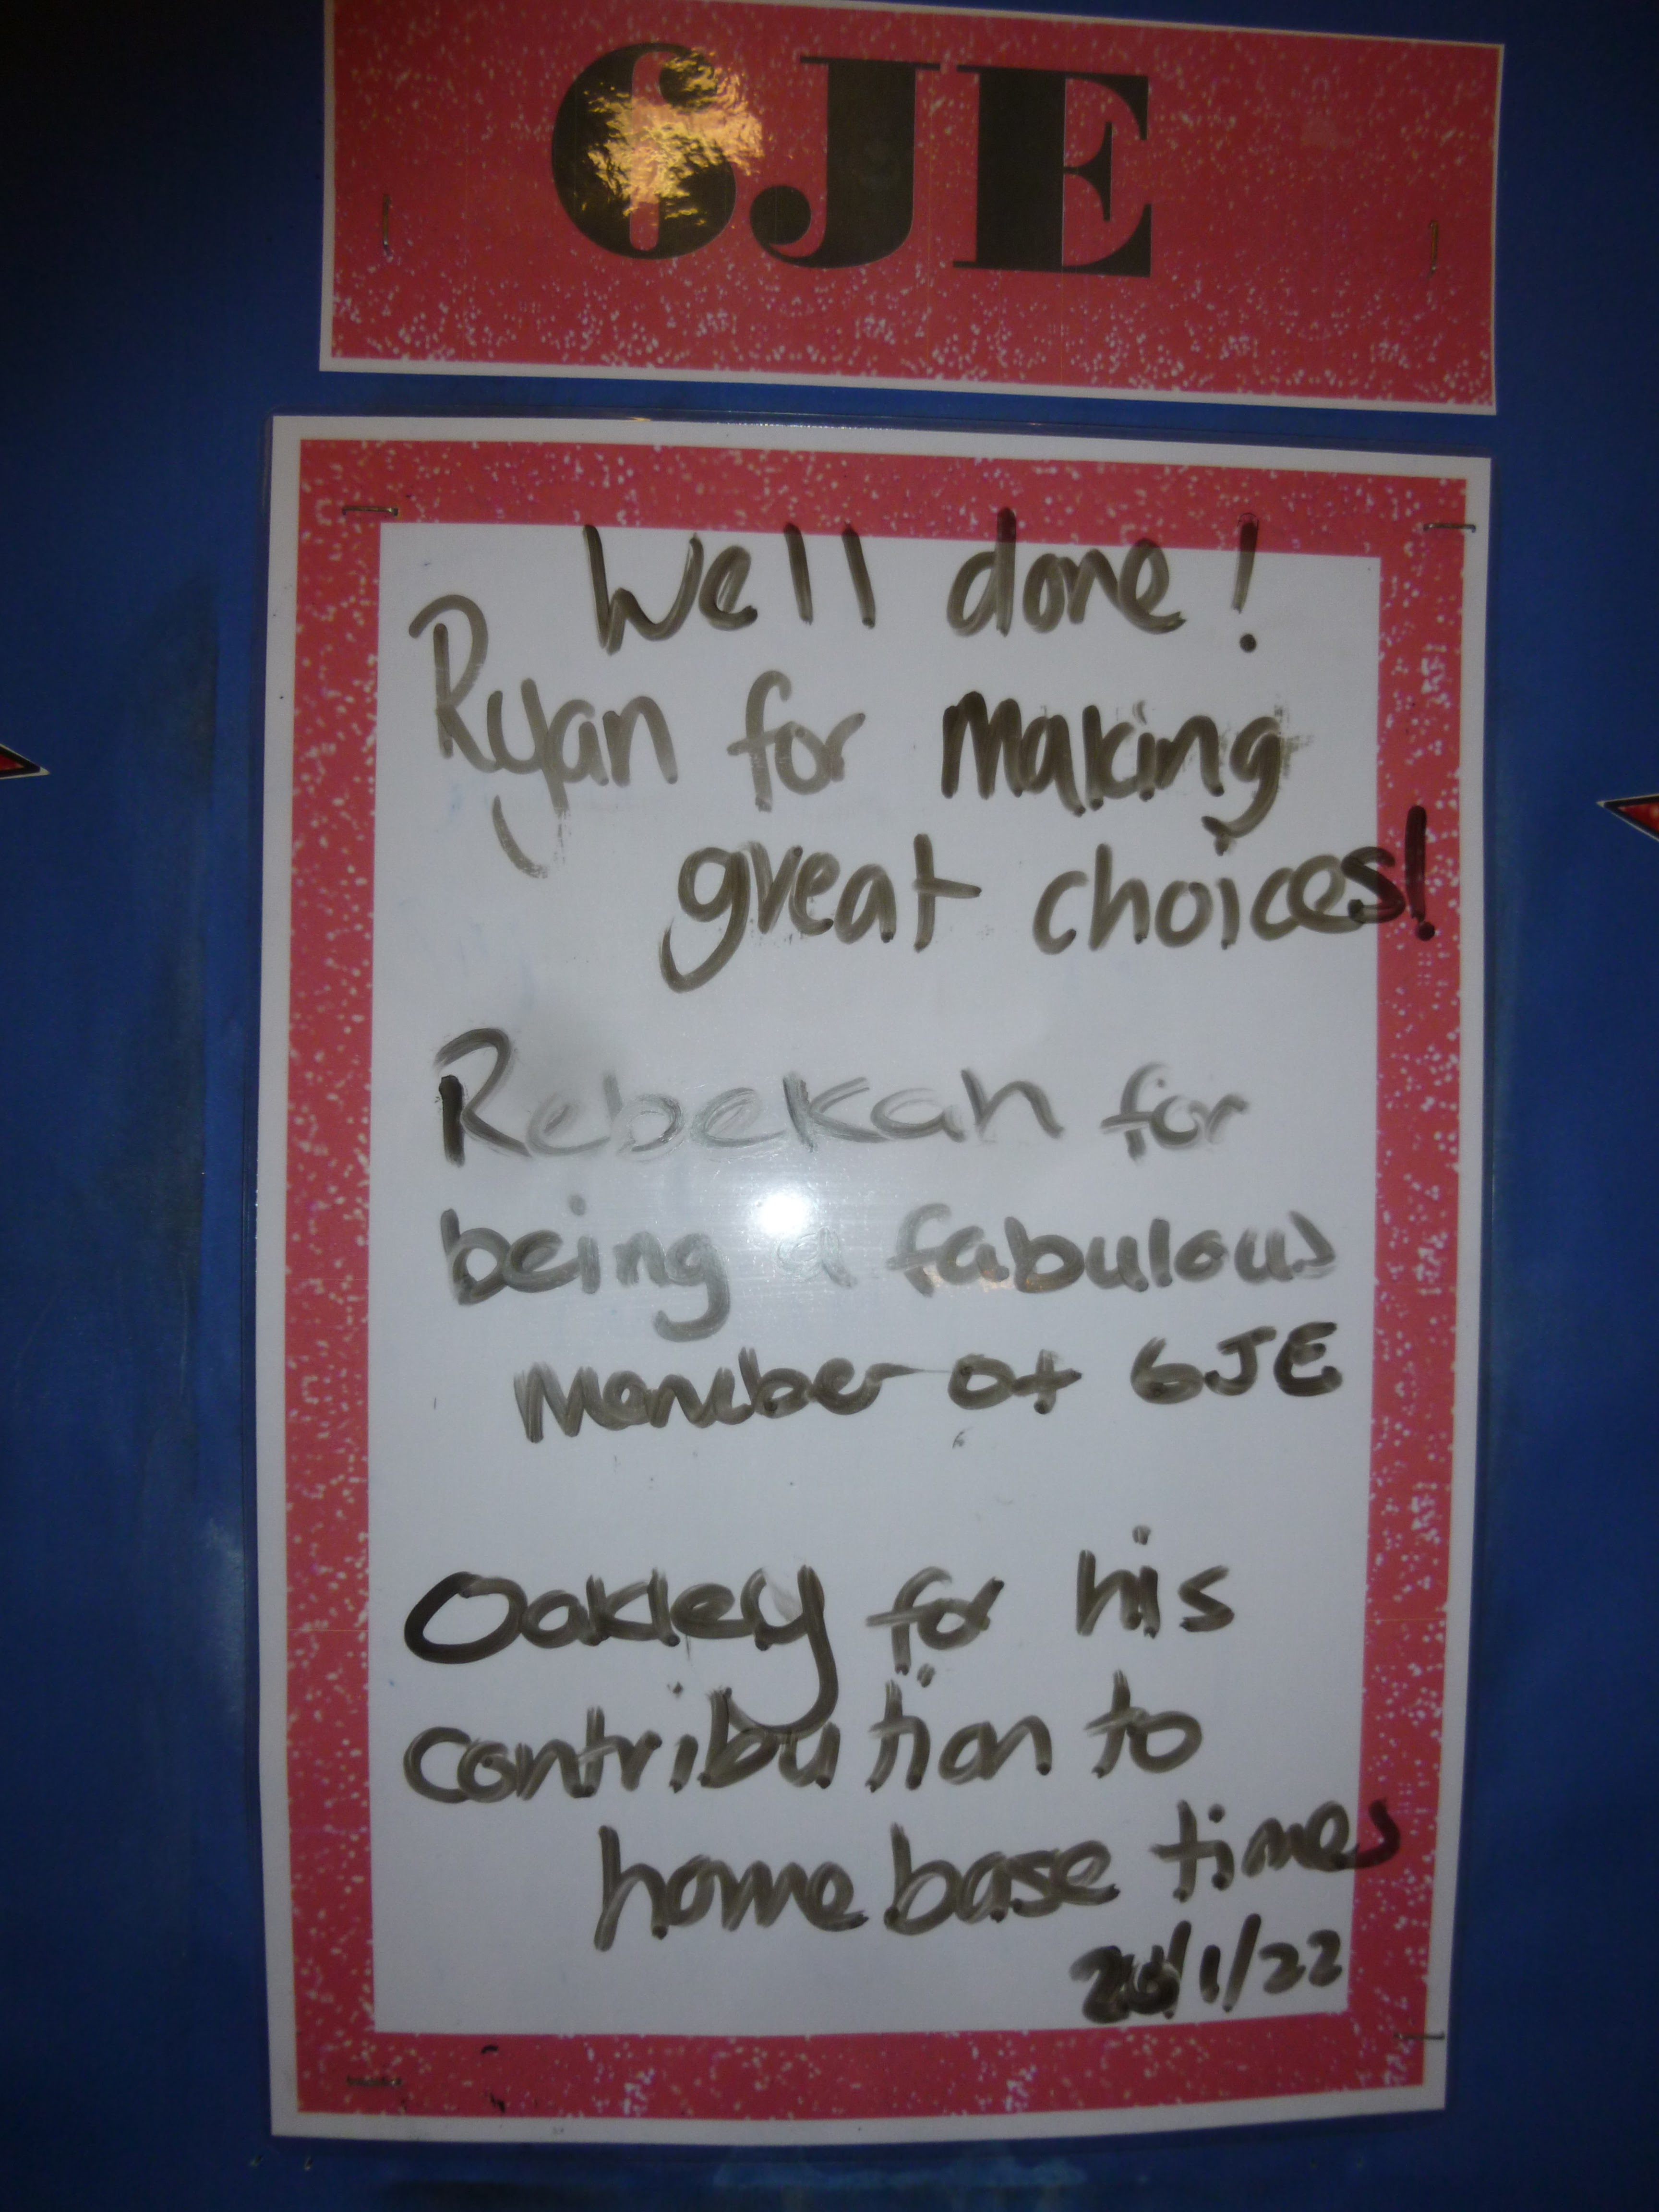 6JE
Well done!
Ryan for making
great choices!
Rebekah for
being a fabulous
member of 6JE
Oakley for his
contribution to
homebase times
/1/22